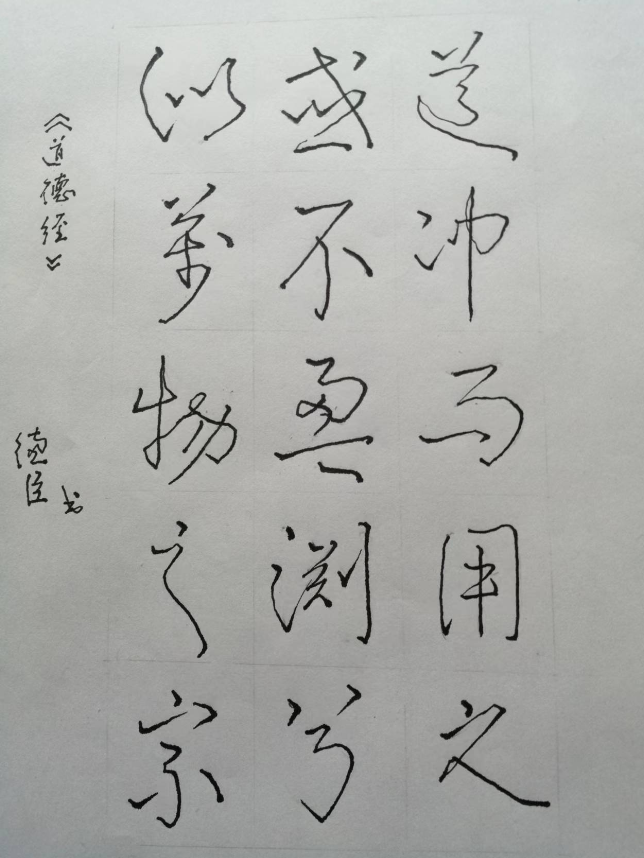 道冲而用之
或不盈渊兮
似萬物之宗
《道德经》
德臣书